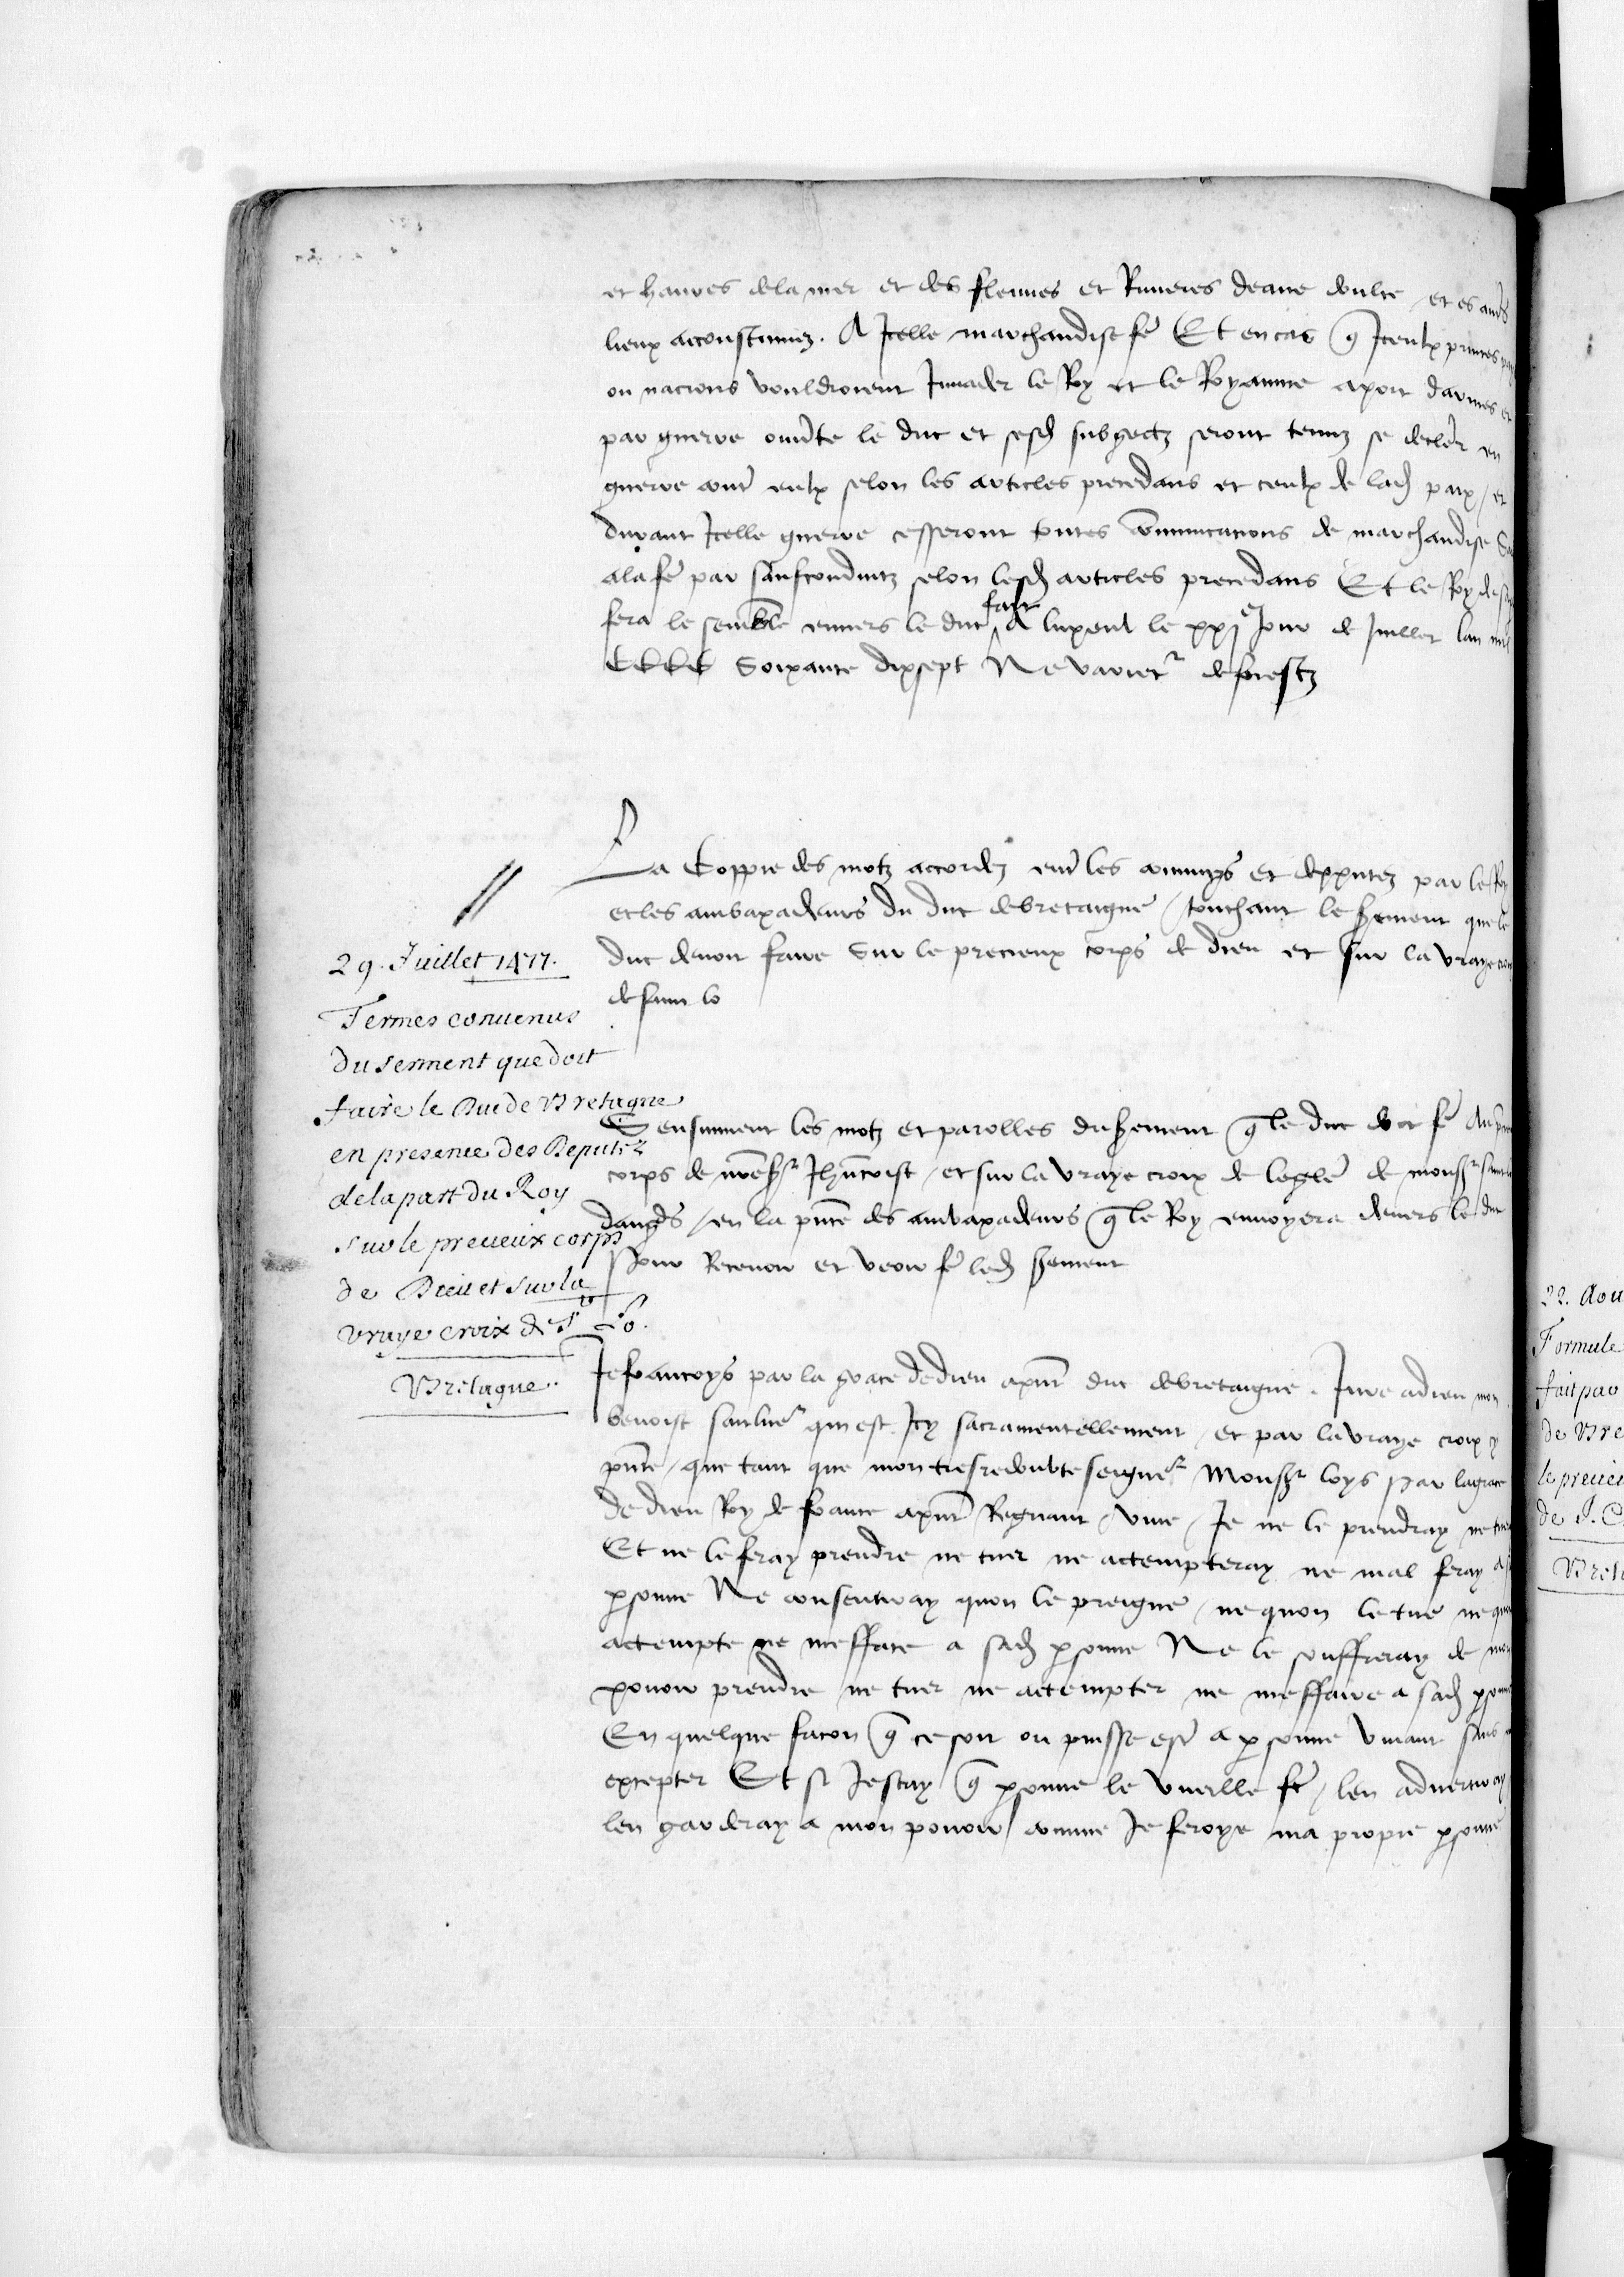 et havres de la mer et des fleuves et Rivieres deaue doulce et es autres
lieux acoustumez. A Icelle marchandise fe Et en cas q Iceulx princes
ou nacions vouldroient Invader le Roy et le Royaume a port darmes et
par guerre ouverte le duc et sesd subgectz seront tenuz se declerer en
guerre contre eulx selon les articles precedans et ceulx de lad paix / et
durant Icelle guerre cesseront toutes communicacions de marchandise
a la fe par saufconduitz selon lesd articles precedans Et le Roy de sa
fera le semble envers le duc fait A luxeul le xxj e Jour de Juillet lan mil
CCCC Soixante dixsept Ne varietr
La Coppie des motz accordez entre les commys et depputez par le Roy
et les ambaxadeurs du duc de bretaigne / touchant le serment que le
duc devoit faire Sur le precieux corps de dieu et sur la vraye croix
de saint lo
29. Juillet 1477.
Termes convenus
du serment que doit
faire le Duc de Bretagne
en presence des Deputez
de la part du Roy
sur le precieux corps
de Dieu et sur la
vraye croix de St Lo.
Bretagne.
Sensuivent les motz et parolles du serment q le duc doit fe Au
corps de nre sr Jhucrist / et sur la vraye croix de leglise de monsr saint
dangrs / en la pnce des ambaxadeurs q le Roy envoyera devers le duc
pour Recevoir et veoir fe led serment
Je francoys par la grace de dieu apnt duc de bretaigne. Jure a dieu mon
benoist saulveur qui est Icy sacramentellement / et par la vraye croix cy
pnte / que tant que mon tresredoubte seigneur Monsr loys par la grace
de dieu Roy de france apnt Regnant / vive / Je ne le prendray ne
Et ne le feray prendre ne tuer ne actempteray ne mal feray a
personne Ne consentiray quon le preigne / ne quon le tue ne quon
actempte ne mefface a sad personne Ne le souffreray de mon
povoir prendre ne tuer ne actempter ne meffaire a sad personne
En quelque facon q ce soit ou puisse estre a personne vivant sans
excepter Et si Je scay q personne le vueille fe / len advertiray
len garderay a mon povoir comme Je feroye ma propre personne
22. Aou
Formule
fait par
de Bre
le precieu
de J. C
Bret